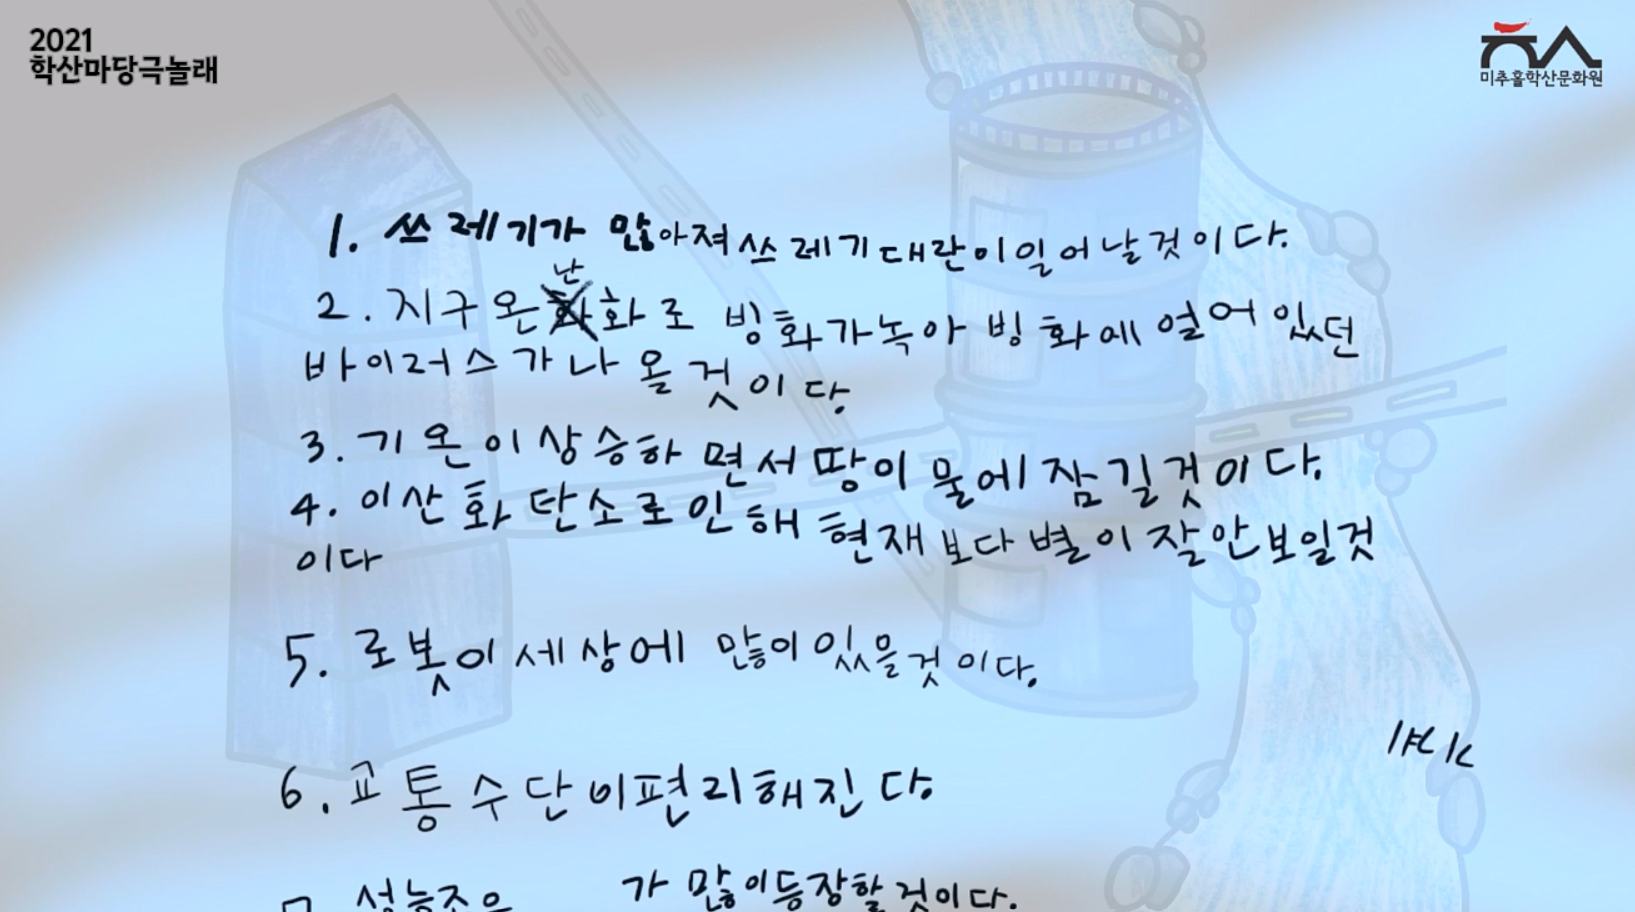 2021
학산마당극놀래
미추홀학산문화원
1. 쓰레기가 많아져 쓰레기대란이일어날것이다.
난
2. 지구온화화로 빙화가녹아 빙화에 얼어있던
바이러스가나올것이다
3. 기온이상승하면서땅이물에잠길것이다.
4. 이산화탄소로인해 현재보다별이잘안보일것
이다
5. 로봇이세상에 많이있을것이다.
6. 교통수단이편리해진다.
가 많이등장할것이다.